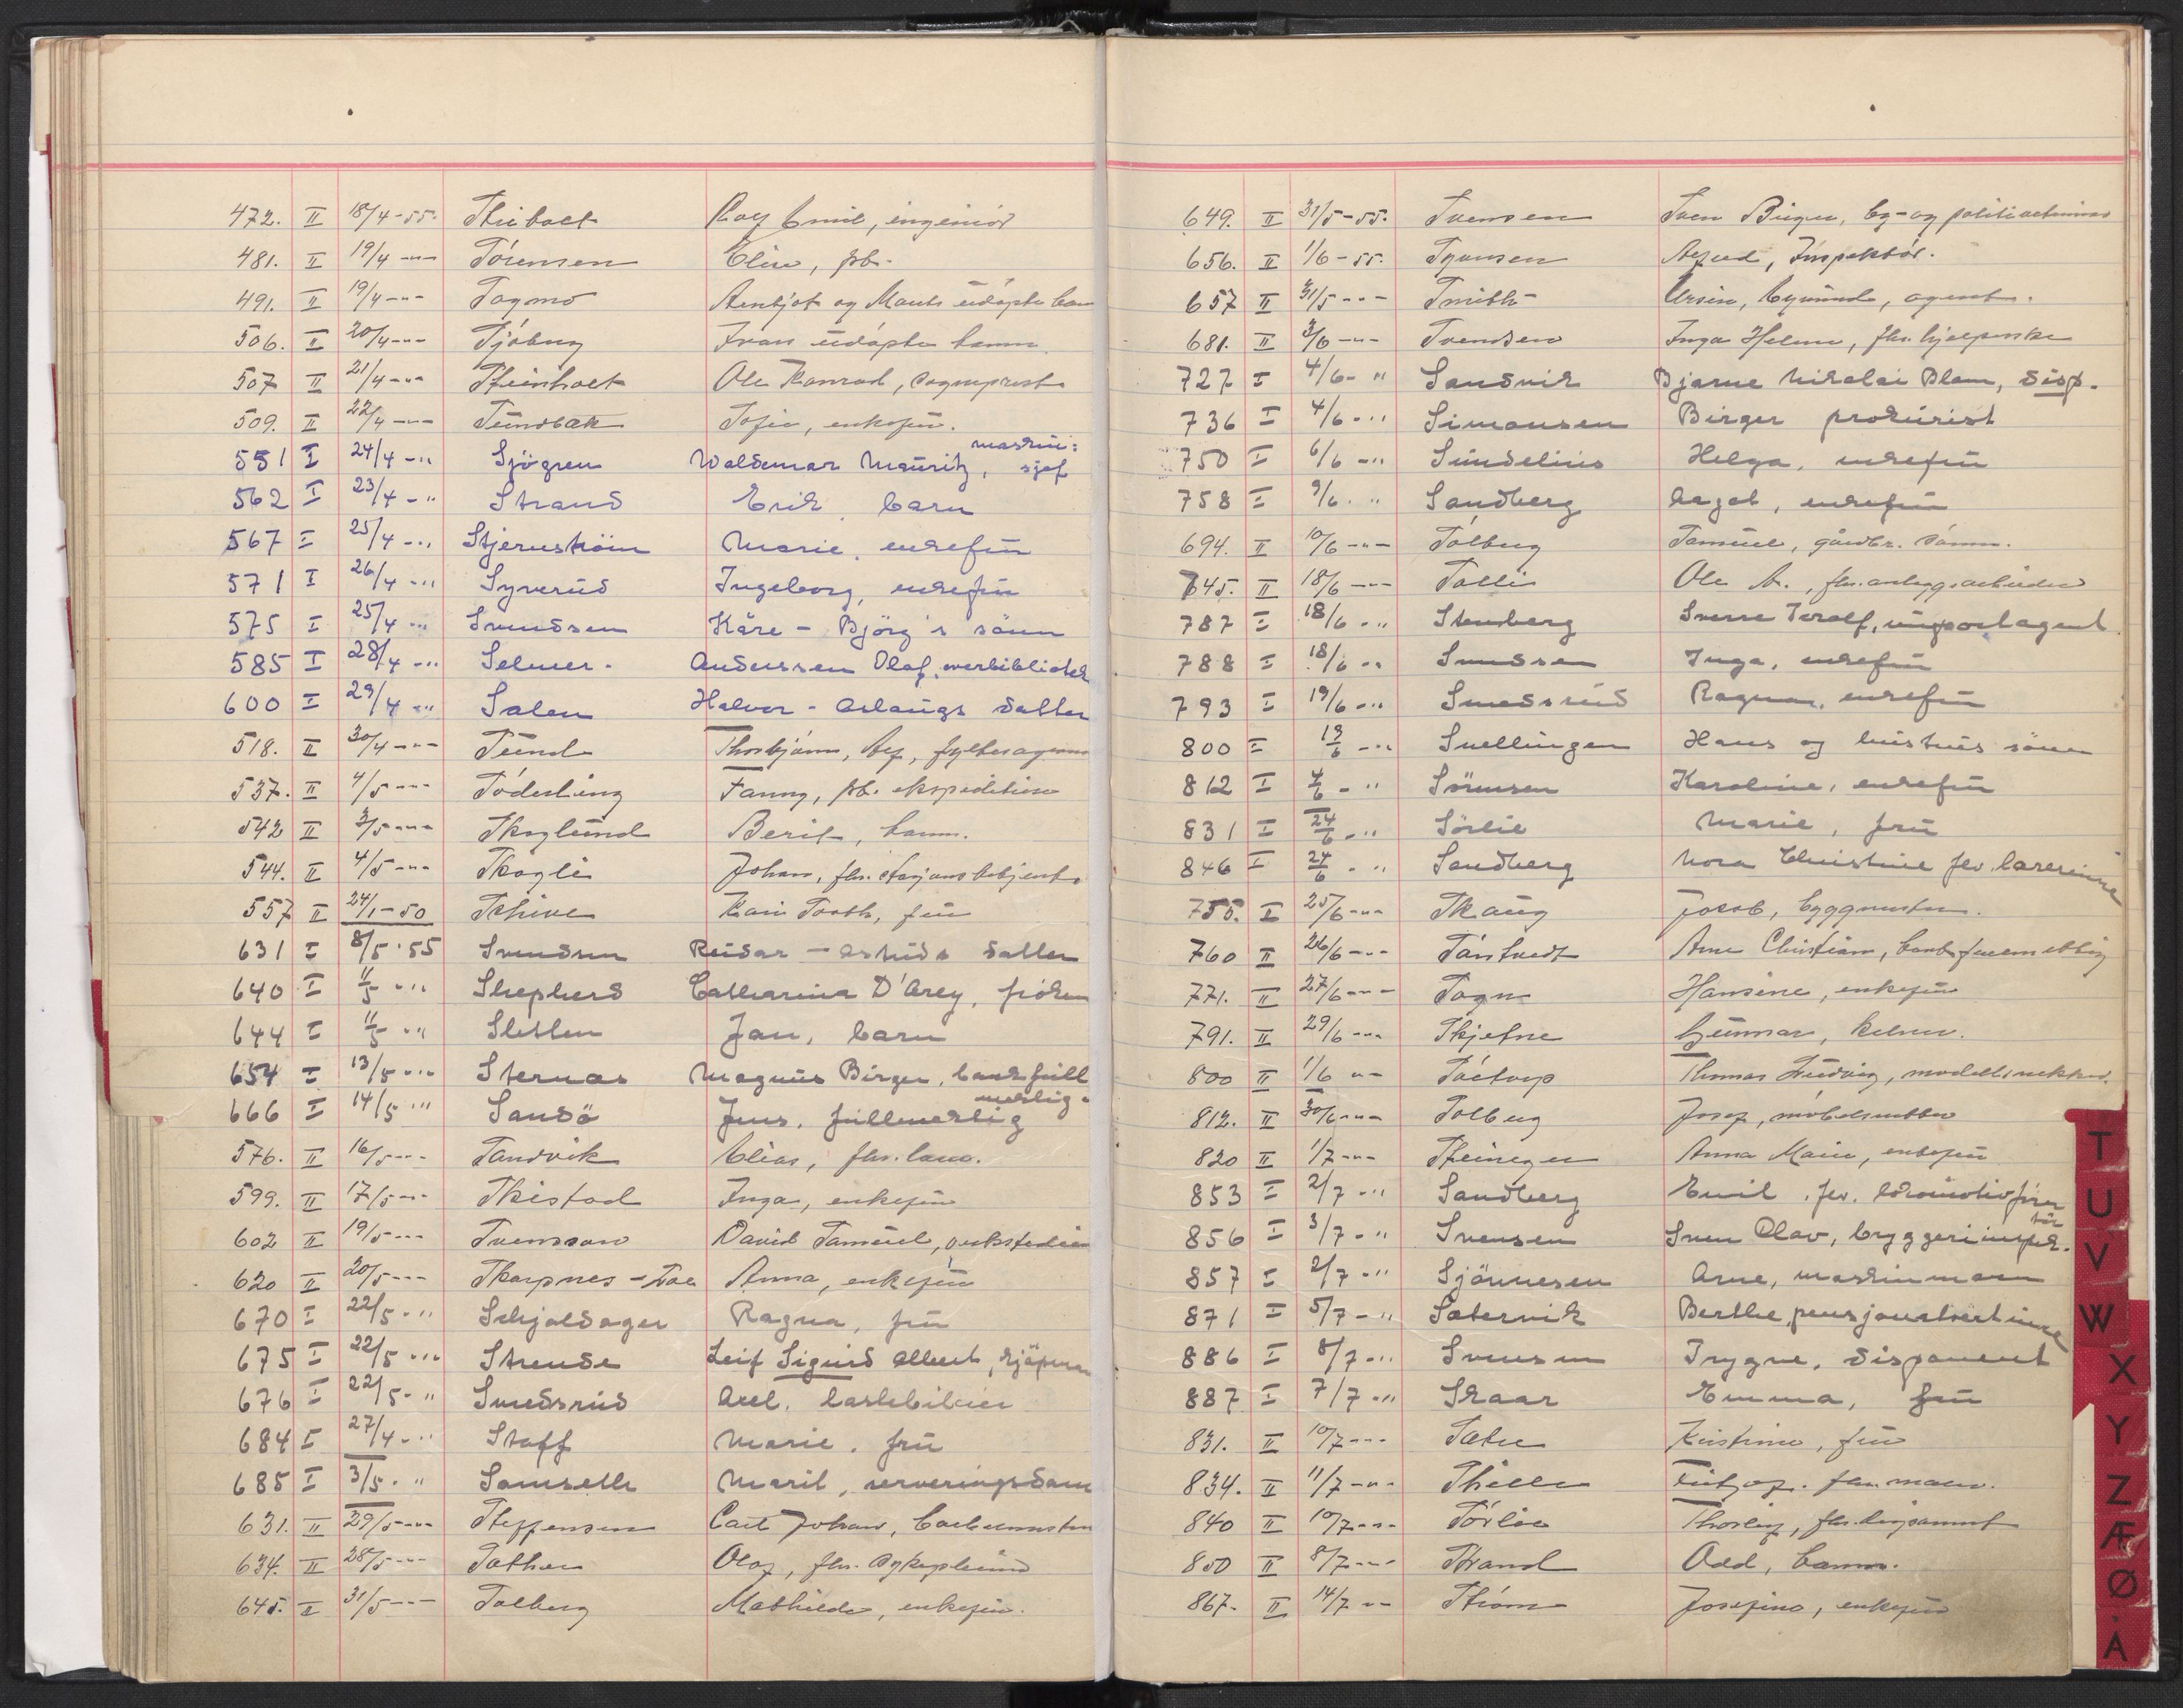 472. II 18/4-55. Stubolt Rolf Emil, ingeniør
481. II 19/4 -"- Sörensen Elise, frk.
491. II 19/4 -"- Sagmo Arnljot og Marits udøpte barn
506. II 20/4 -"- Sjöberg Ivars udøpte barn
507 II 21/4 -"- Steinholt Ole Konrad, sogneprest
509. II 22/4 -"- Sundbakk Sofie, enkefru.
551 I 24/4 -" Sjögren Waldemar Mauritz, maskin: sjef
562 I 23/4 -" Strand Erik, barn
567 I 25/4 -" Stjernström Marie, enkefru
571 I 26/4 -" Syverud Ingeborg, enkefru
575 I 25/4 -" Svendsen Kåre - Björg's sönn
585 I 28/4 -" Selmer- Anderssen Olaf, overbibliotek
600 I 29/4 -" Salen Halvor - Aslaugs datter
518. II 30/4 -"- Sund Thorbjørn, Alf, fylkesagronom
537. II 4/5 -"- Söderling Fanny, frk. ekspeditrise
542 II 3/5 -"- Skoglund Berit, barn.
544. II 4/5 -"- Skogli Johan, fhv. stasjonsbetjent.
557 II 24/1-50 Schive Kari Tooth, fru
631 I 8/5-55 Svendsen Reidar - Astrids datter
640 I 11/5 -" Shepherd Catharina D'Arcy, fröken
644 I 11/5 -" Sletten Jan, barn
654 I 13/5 -" Sternas Magnus Birger, bankfull mektig.
666 I 14/5 -" Sandö Jens, fullmektig
576. II 16/5 -"- Sandvik Elias, fhv. lærer.
599. II 17/5 -"- Skistad Inga, enkefru
602 II 19/5 -"- Svensson David Samuel, verkstedeier
620 II 20/5 -"- Skarpnes - Anna, enkefru
670 I 22/5 -" Schjoldager Ragna, fru
675 I 22/5 -" Strende Leif Sigurd Albert, sjömann
676 I 22/5 -" Smedsrud Axel, lastebileier
684 I 27/4 -" Stoff Marie, fru
685 I 3/5 -" Samseth Marit, serveringsdame
631. II 29/5 -"- Steffensen Carl Johan,
634. II 28/5 -"- Sather Olaf, fhv. sykepleier
645. II 31/5 -"- Solberg Mathilde, enkefru.
649. II 31/5-55. Svensen Sven Birger, by- og politi
656. II 1/6-55. Syversen Alfred, Inspektør.
657 II 31/5 -"- Smith- Ursin, Eymund, agent.
681. II 3/6 -"- Svendsen Inga Helene, fhv. hjelpepleierske
727 I 4/6 -" Sandvik Bjarne Nikolai Blom, disp.
736 I 4/6 -" Simonsen Birger prokurist
750 I 6/6 -" Sundelius Helga, enkefru
758 I 9/6 -" Sandberg enkefru
694. II 10/6 -"- Solberg Samuel, gårdbr. sønn.
745. II 18/6 -"- Solli Ole A., fhv. anleggsarbeider
787 I 18/6 -" Stenberg Sverre Torolf, importagent
788 I 18/6 -" Smedsen Inga, enkefru
793 I 19/6 -" Smedsrud Ragna, enkefru
800 I 19/6 -" Snellingen Hans og hustrus sönn
812 I 4/6 -" Sörensen Karoline, enkefru
831 I 24/6 -" Sörlie Marie, fru
846 I 24/6 -" Sandberg Nora Christine fev. lærerinne
755. II 25/6 -"- Skaug Jacob, byggmester.
760 II 26/6 -"- Sørtvedt Arne Christian, bankfullmektig
771. II 27/6 -"- Sogn Hansine, enkefru
791. II 29/6 -"- Skjefne Gunnar, kelner.
800 II 1/6 -"- Sætorp Thomas Ludvig, modellsnekker.
812. II 30/6 -"- Solberg Josef, møbelsnekker
820 II 1/7 -"- Steineger Anna Marie, enkefru
853 I 2/7 -" Sandberg Emil, fev. lokomotivfører
856 I 3/7 -" Svensen Sven Olav, bryggeriinspek. tör
857 I 2/7 -" Sjönnesen Arne, maskinmann
871 I 5/7 -" Sætervik Berthe, pensjonatvertinne
886 I 8/7 -" Svensen Trygve, disponent
887 I 7/7 -" Skaar Emma, fru
831. II 10/7 -"- Sæter Kristine, fru
834. II 11/7 -"- Skille Fritjof. fhv. maler.
840 II 10/7 -"- Sörlie Thorleif,
850 II 8/7 -"- Strand Odd, barn.
867. II 14/7 -"- Ström Josefine, enkefru
T
U
V
W
X
Y
Z
Æ
Ø
Å